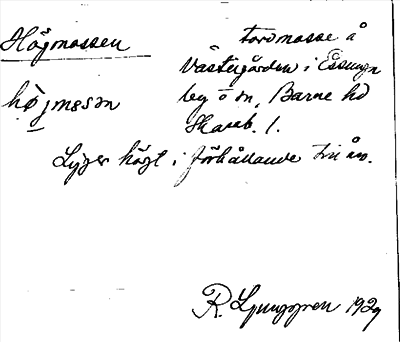 Högmossen
torvmosse å
Västergården i Essunga
højmɛsən
beg o sn, Barne hd
Skarab. l.
Ligger högt i förhållande till ån.
R. Ljunggren 1929